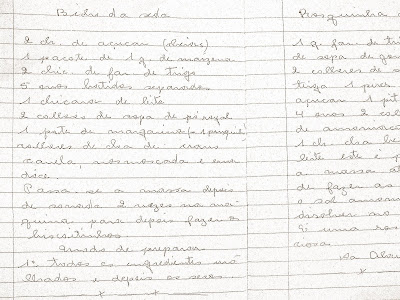 Bicho da seda
2 ch. de açucar (cheios)
1 pacote de 1 q. de maizena
2 chic. de far de trigo
5 ovos batidos separados
1 chicara de leite
2 colheres de sopa de
1 pote de margarina
colheres de cha de: cravo
canela, nosmoscada e erva
doce.
Passa se a massa depois
de sovada 2 vezes na ma
quina para depois fazer os
biscoitinhos
Modo de preparar
1º todos os ingredientes mo
lhados e depois os secos.
Rosquinha
1 q. far de tri
de sopa de
2 colheres de s
tinga 1 pires
açucar 1 pit
4 ovos 2 col
de amoniaco
1 ch. cha
leite este é p
a massa
de fazer as
o sal amon
dissolver no
É uma ros